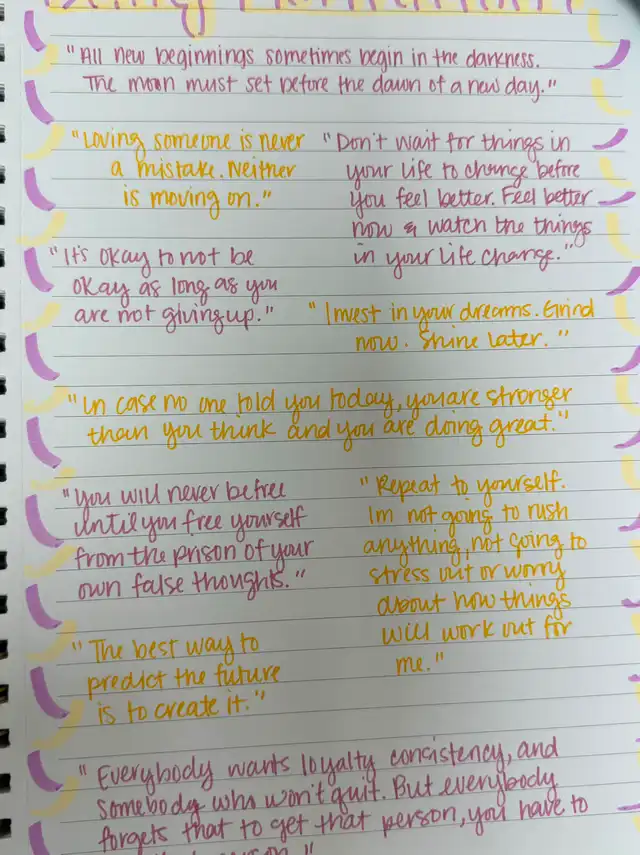 "All new beginnings sometimes begin in the darkness.
The moon must set before the dawn of a new day."
"Loving someone is never
a mistake. Neither
is moving on."
"Don't wait for things in
your life to change before
you feel better. Feel better
now & watch the things
in your life change."
"It's okay to not be
okay as long as you
are not giving up."
"Invest in your dreams. Grind
now. Shine later."
"In case no one told you today, you are stronger
than you think and you are doing great."
"You will never be free
until you free yourself
from the prison of your
own false thoughts."
"Repeat to yourself.
Im not going to rush
anything, not going to
stress out or worry
about how things
will work out for
me."
"The best way to
predict the future
is to create it."
"Everybody wants loyalty consistency, and
somebody who won't quit. But everybody
forgets that to get that person, you have to